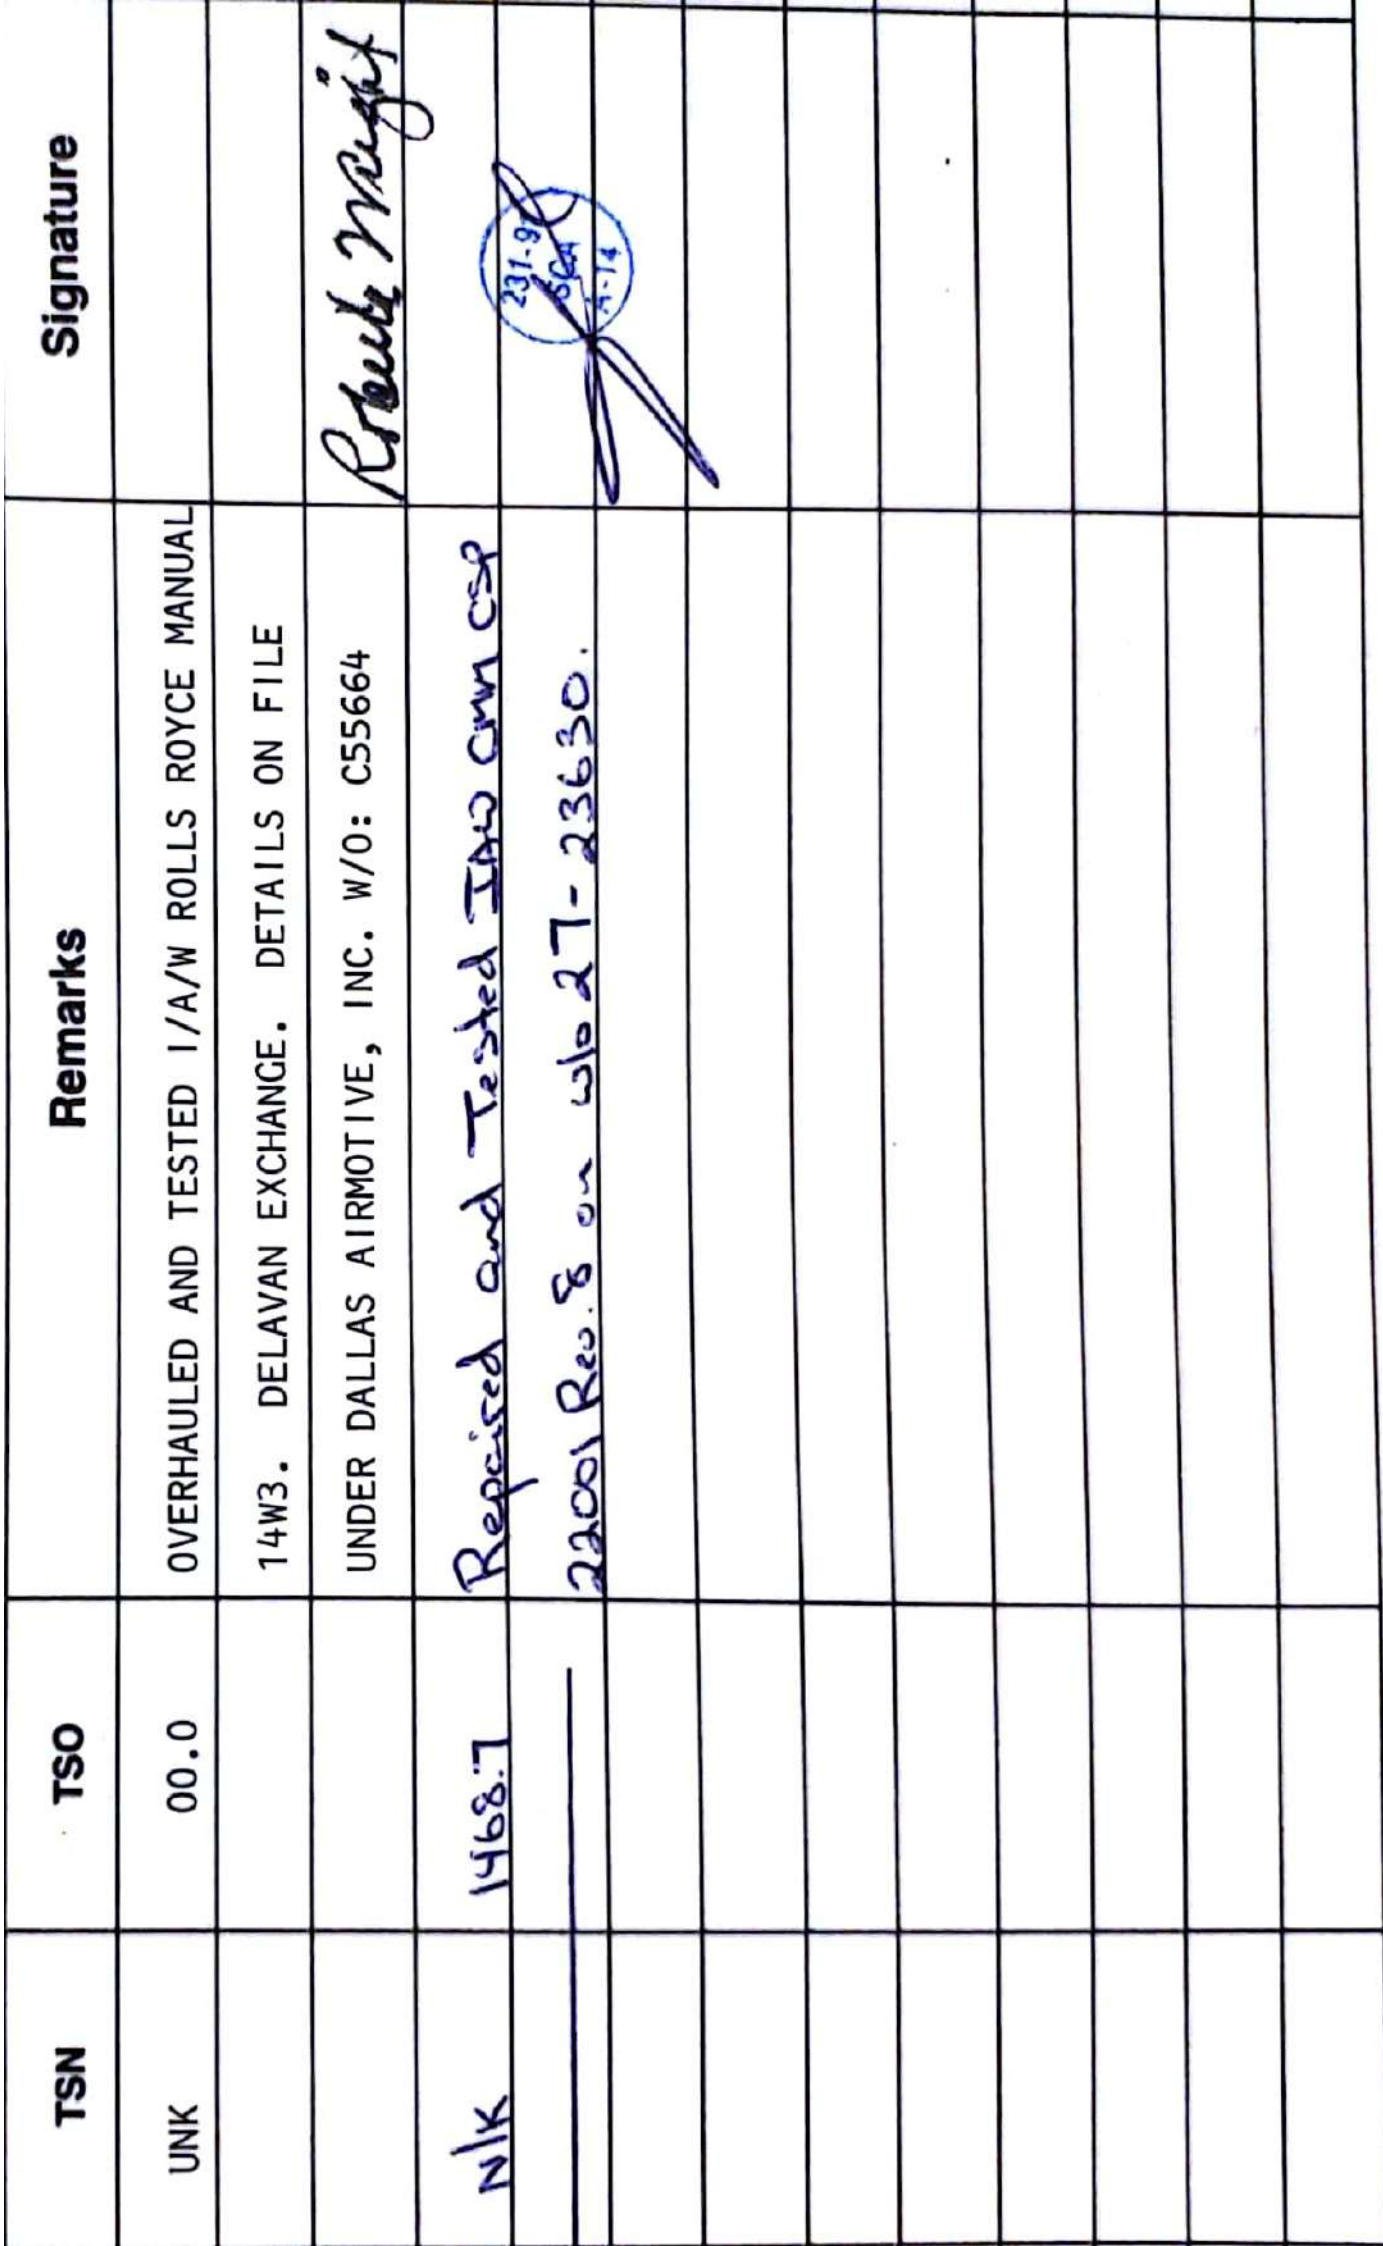 TSN TSO Remarks Signature
UNK 00.0 OVERHAULED AND TESTED I/A/W ROLLS ROYCE MANUAL
14W3. DELAVAN EXCHANGE. DETAILS ON FILE
UNDER DALLAS AIRMOTIVE, INC. W/O: C55664 Roberta Wright
N/K 1468.7 Repaired and Tested IAW CMM CSP
22001 Rev. 8 on w/o 27-23630.
231-9
SCA
A-14